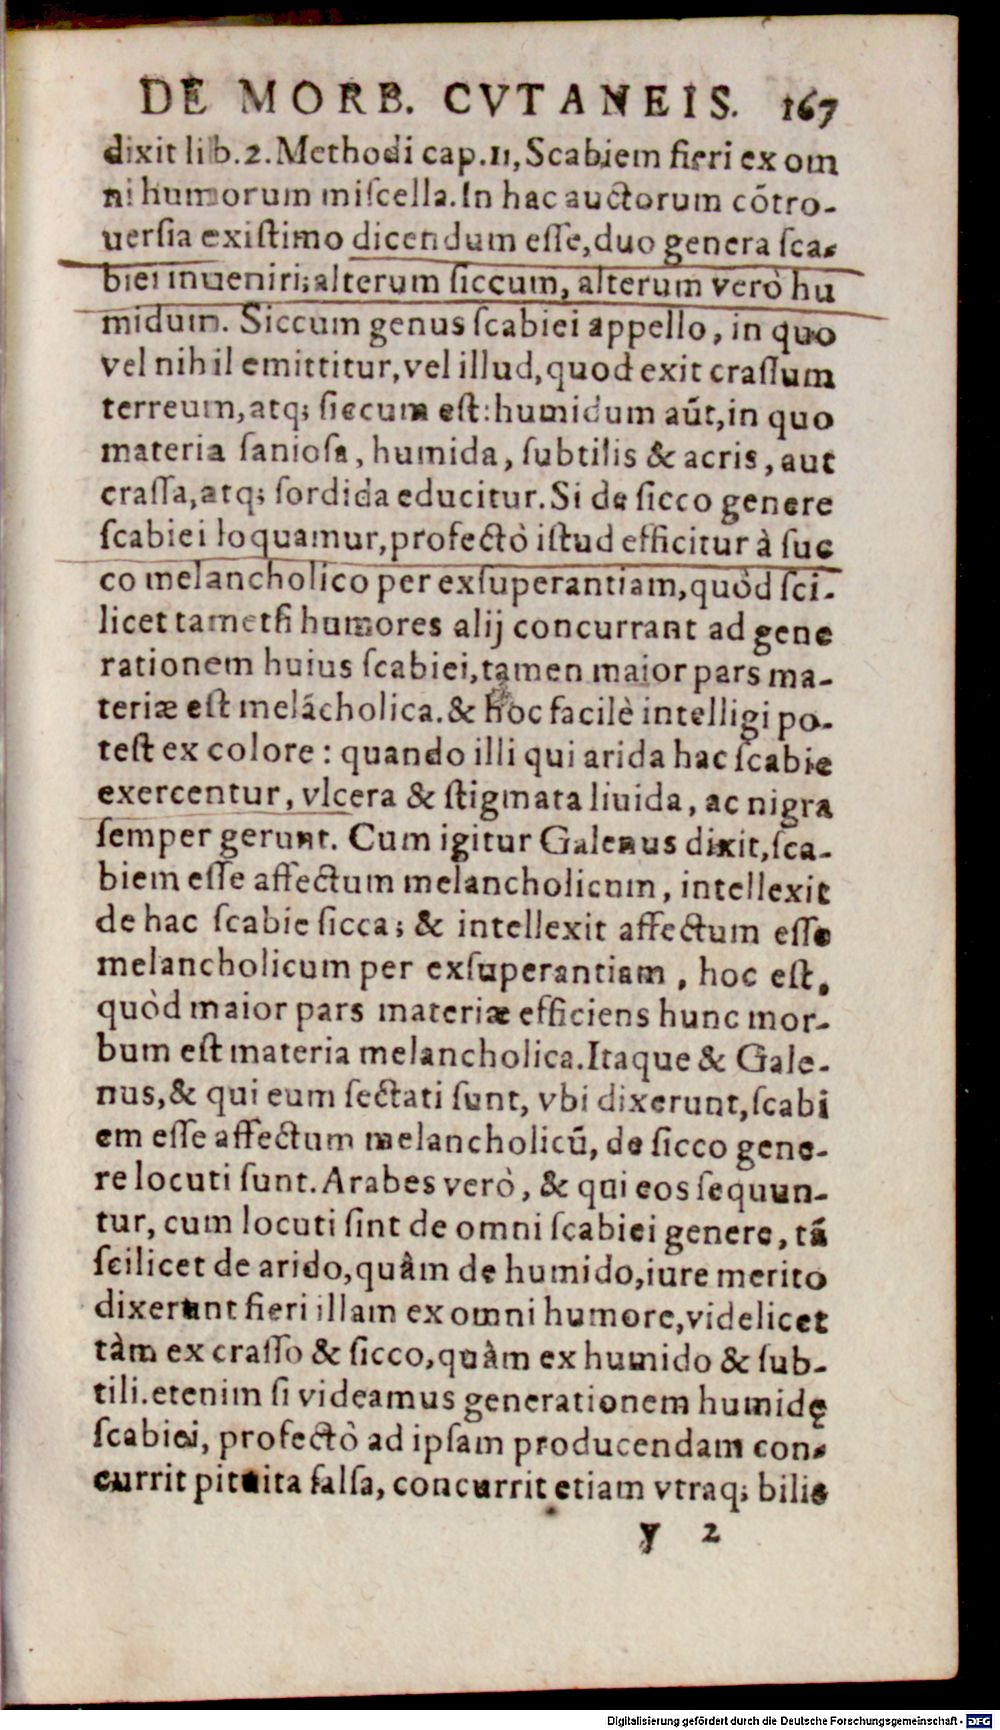 DE MORB. CVTANEIS. 167
dixit lib.2.Methodi cap.11,Scabiem fieri ex om
ni humorum miſcella.In hac auctorum cõtro-
uerſia exiſtimo dicendum eſſe,duo genera ſca-
biei inueniri;alterum ſiccum, alterum verò hu
midum. Siccum genus ſcabiei appello, in quo
vel nihil emittitur,vel illud,quod exit craſſum
terreum,atq; ſiccum eſt:humidum aũt,in quo
materia ſanioſa, humida, ſubtilis & acris, aut
craſſa,atq; ſordida educitur.Si de ſicco genere
ſcabiei loquamur,profectò iſtud efficitur à ſuc
co melancholico per exſuperantiam,quòd ſci-
licet tametſi humores alij concurrant ad gene
rationem huius ſcabiei,tamen maior pars ma-
teriæ eſt melácholica.& hoc facilè intelligi po-
teſt ex colore: quando illi qui arida hac ſcabie
exercentur, vlcera & ſtigmata liuida, ac nigra
ſemper gerunt. Cum igitur Galenus dixit,ſca-
biem eſſe affectum melancholicum, intellexit
de hac ſcabie ſicca; & intellexit affectum eſſe
melancholicum per exſuperantiam, hoc eſt,
quòd maior pars materiæ efficiens hunc mor-
bum eſt materia melancholica.Itaque & Gale-
nus,& qui eum ſectati ſunt, vbi dixerunt,ſcabi
em eſſe affectum melancholicũ, de ſicco gene-
re locuti ſunt.Arabes verò, & qui eos ſequun-
tur, cum locuti ſint de omni ſcabiei genere, tã
ſcilicet de arido,quàm de humido,iure merito
dixerunt fieri illam ex omni humore,videlicet
tàm ex craſſo & ſicco,quàm ex humido & ſub-
tili.etenim ſi videamus generationem humidę
ſcabiei, profectò ad ipſam producendam con-
currit pituita ſalſa, concurrit etiam vtraq; bilis
y 2
Digitalisierung gefördert durch die Deutsche Forschungsgemeinschaft - DFG